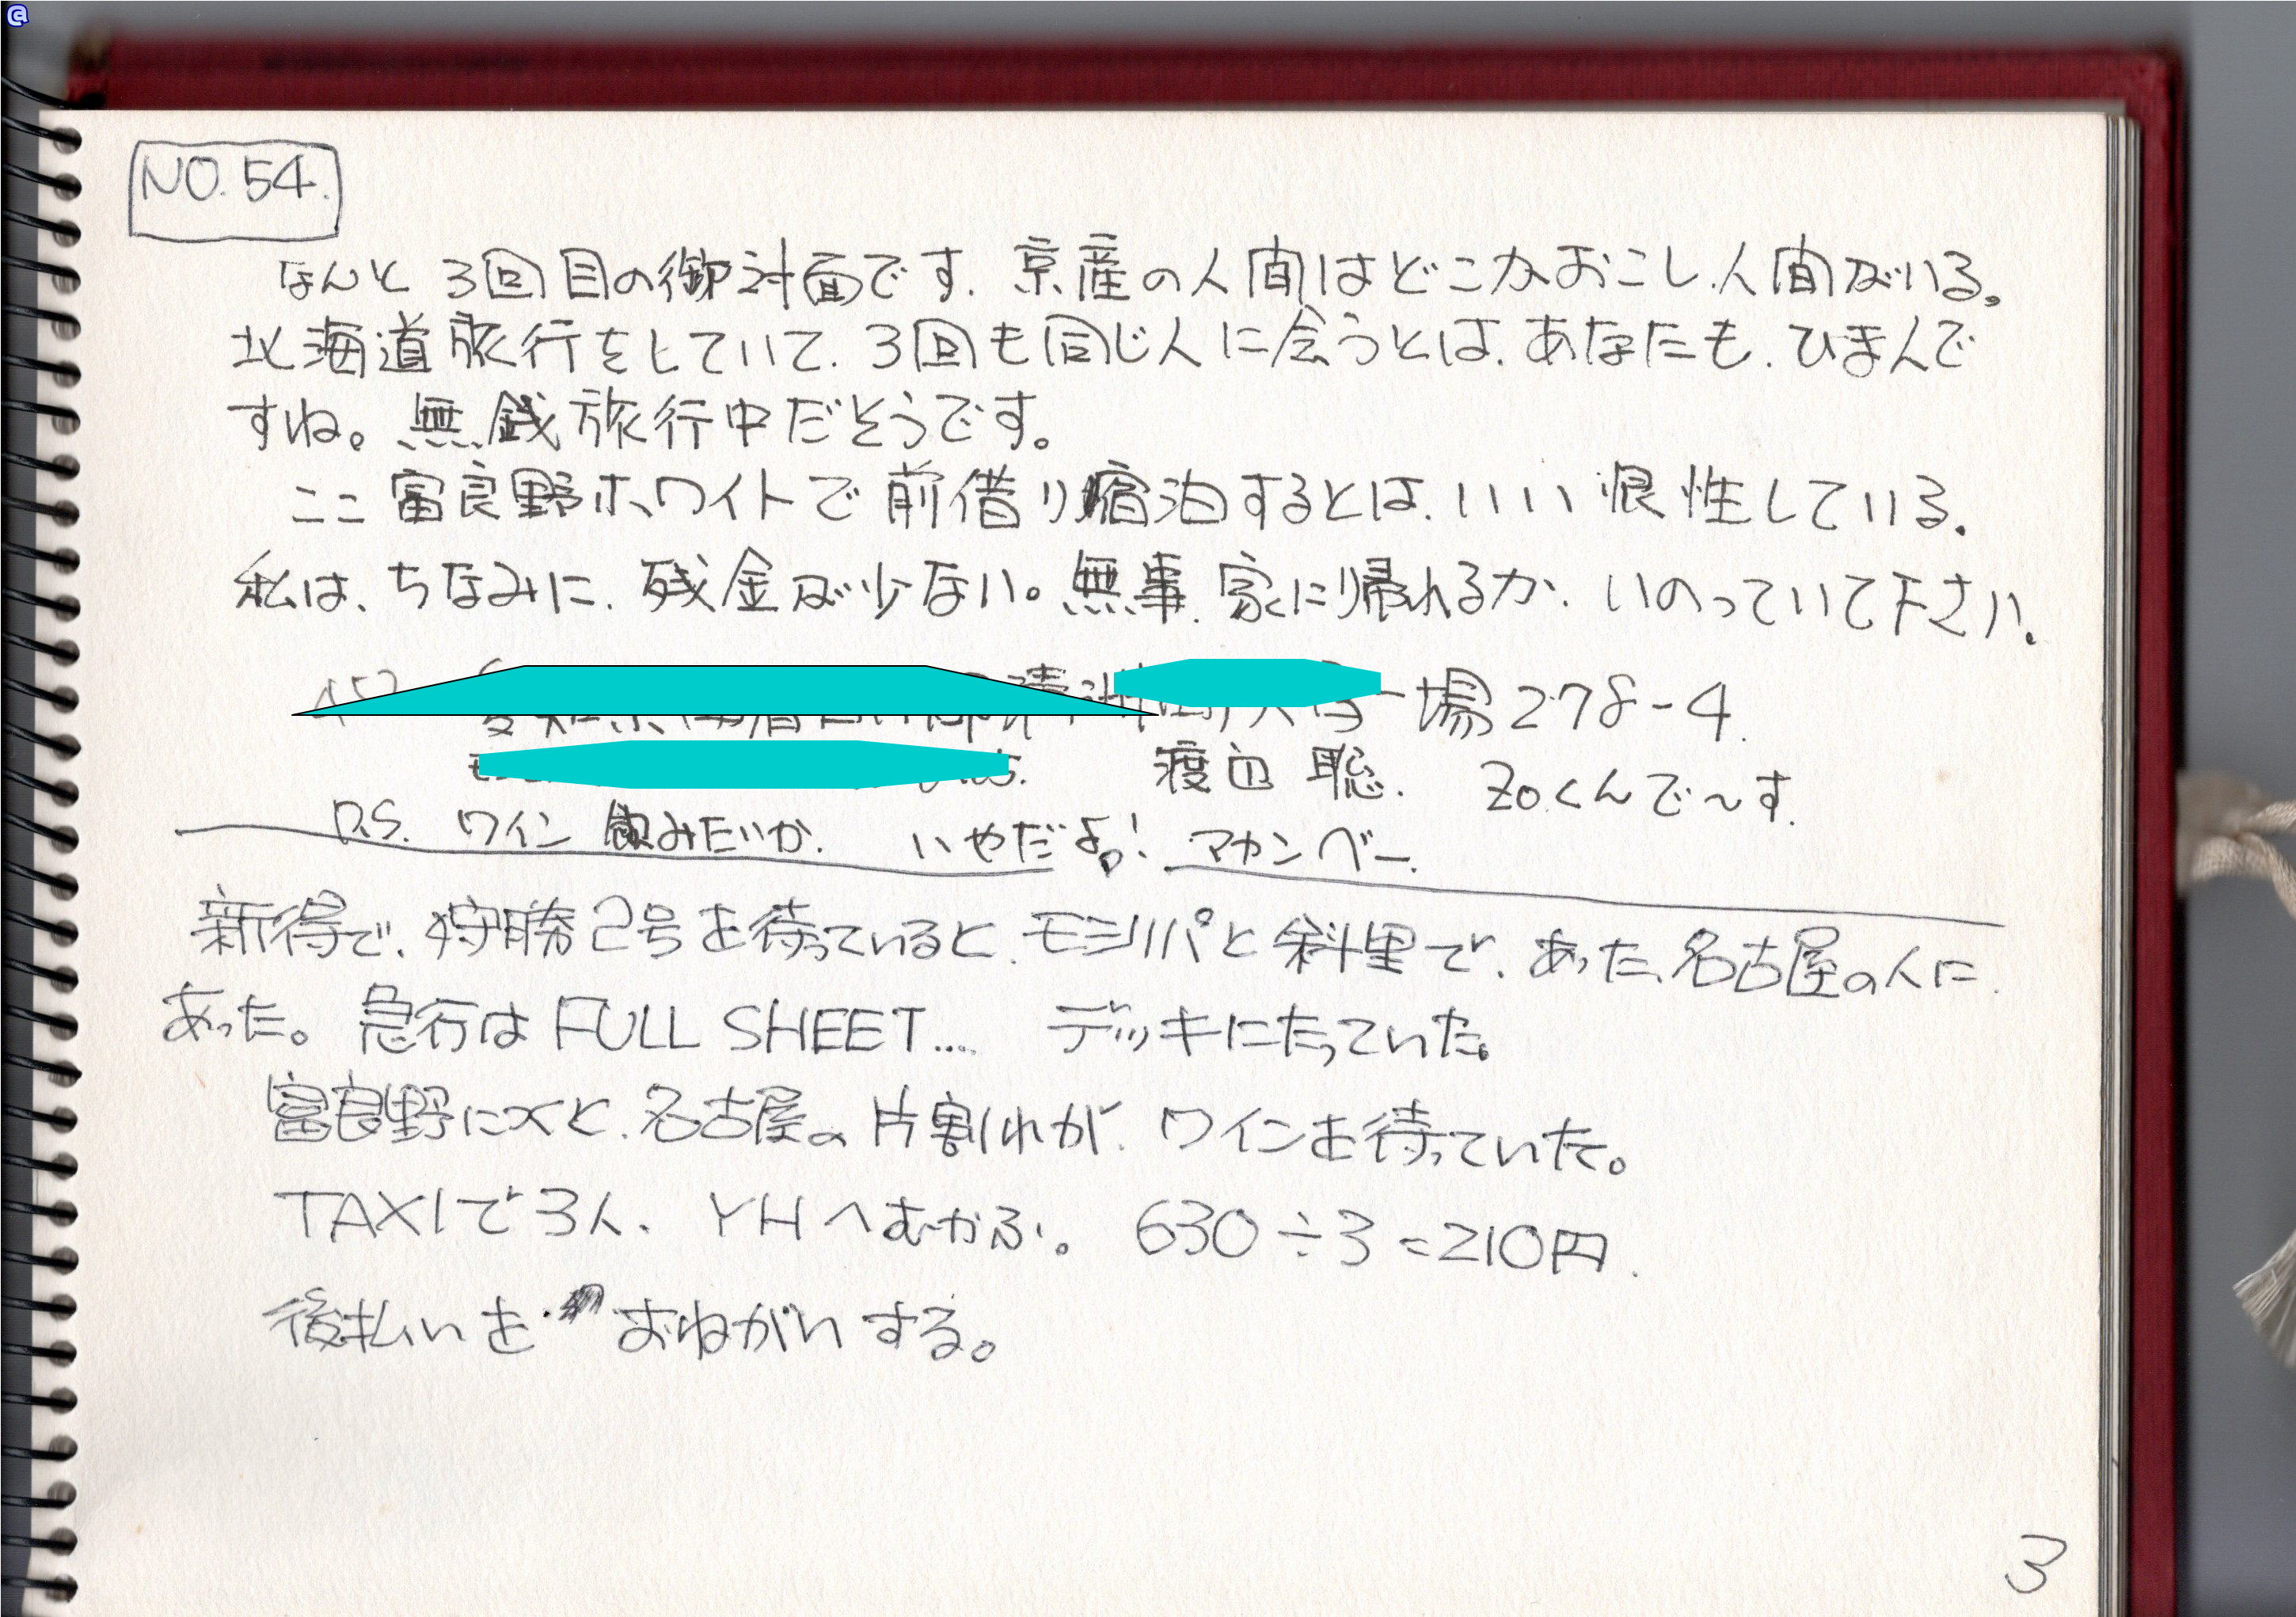 @
NO. 54.
なんと 3回目の御対面です. 京産の人間はどこかおこし.人間がいる。
北海道旅行をしていて. 3回も同じ人に会うとは. あなたも. ひまんで
すね。無銭旅行中だそうです。
ここ富良野ホワイトで前借り宿泊するとは. いい根性している.
私は、ちなみに. 残金が少ない。無事. 家に帰れるか. いのっていて下さい.
場 278-4.
渡辺 聡. Zoくんで~す.
P.S. ワイン 飲みたいか. いやだよ! アカンベー.
新得で. 狩勝2号を待っていると. モシリパと斜里で. あった. 名古屋の人に.
あった。急行は FULL SHEET... デッキにたっていた。
富良野につくと. 名古屋の片割れが. ワインを待っていた。
TAXIで3人. YHへむかふ。 630÷3=210円.
後払いを おねがいする。
3